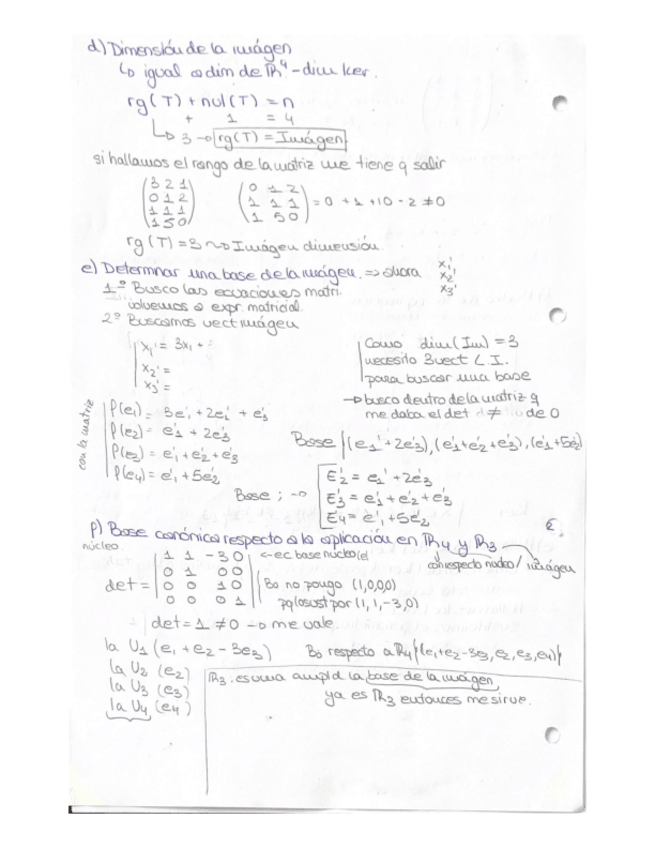 d) Dimensión de la imágen
↳ igual a dim de ℝ⁴ - dim ker.
rg(T) + nul(T) = n
+ 1 = 4
↳ 3 → rg(T) = Imágen
si hallamos el rango de la matriz me tiene q salir
(3 2 1 / 0 1 2 / 1 1 1 / 1 5 0) (0 1 2 / 1 1 1 / 1 5 0) = 0 + 1 + 10 - 2 ≠ 0
rg(T) = 3 → Imágen dimensión
e) Determinar una base de la imágen. ⇒ ahora x₁' x₂' x₃'
1º Busco las ecuaciones matri.
volvemos a expr. matricial.
2º Buscamos vect imágen
x₁' = 3x₁ +
x₂' =
x₃' =
Como dim(Im) = 3
necesito 3 vect L.I.
para buscar una base
→ busco dentro de la matriz q
me daba el det ≠ de 0
con la matriz
f(e₁) = 3e'₁ + 2e'₂ + e'₃
f(e₂) = e'₁ + 2e'₃
f(e₃) = e'₁ + e'₂ + e'₃
f(e₄) = e'₁ + 5e'₂
Base {(e₁' + 2e'₃), (e'₁ + e'₂ + e'₃), (e'₁ + 5e'₂
Base ; →
E'₂ = e₁' + 2e'₃
E'₃ = e'₁ + e'₂ + e'₃
E'₄ = e'₁ + 5e'₂
f) Base canónica respecto a la aplicación en ℝ₄ y ℝ₃
con respecto nucleo / imágen
núcleo
det = | 1 1 -3 0 / 0 1 0 0 / 0 0 1 0 / 0 0 0 1 |
← ec base nucleo (e)
Bo no pongo (1,0,0,0)
pq lo sust por (1, 1, -3, 0)
det = 1 ≠ 0 → me vale
la U₁ (e₁ + e₂ - 3e₃) Bo respecto a ℝ₄ {(e₁+e₂-3e₃, e₂, e₃, e₄)}
la U₂ (e₂)
la U₃ (e₃)
la U₄ (e₄)
ℝ₃. es una ampl d la base de la imágen
ya es ℝ₃ entonces me sirve.